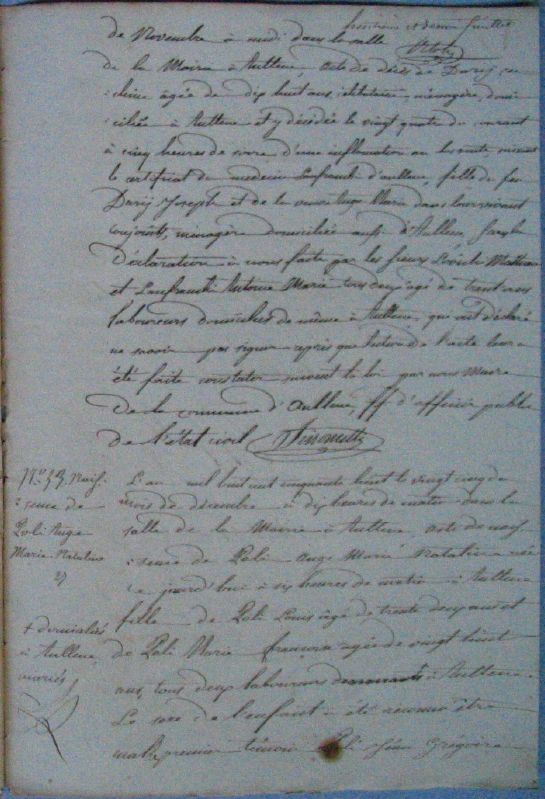 huitième et dernier feuillet
de Novembre à midi dans la salle
de la Mairie à Aullène, acte de décès de Durij
âgée de dix huit ans célibataire, ménagère, domi
ciliée à Aullène et y décédée le vingt quatre du courant
à cinq heures de soir d'une inflamation au bas ventre, suivant
le certificat du medecin Lanfranchi d'aullene, fille de feu
Durij Joseph et de la veuve Ange Marie dans leur vivant
conjoints, ménagère domiciliée aussi d'Aullène, sur la
Déclaration à nous faite par les sieurs Mathieu
et Lanfranchi Antoine Marie tous deux âgé de trente ans
laboureurs domiciliés de même à Aullène, qui ont déclaré
ne savoir pas signer après que lecture de l'acte leur a
été faite constaté suivant la loi par nous Maire
De la commune d'Aullène ff d'officier public
De l'état civil
Nais-
sance de
Poli Ange
Marie Natalina
L'an mil huit cent cinquante huit le vingt cinq du
mois de décembre à dix heures de matin dans la
salle de la Mairie à Aullène, acte de nais
sance de Poli Ange Marie Natalina née
ce jourd'hui à six heures de matin à Aullène
fille de Poli Louis âgé de trente deux ans et
de Poli Marie françoise âgée de vingt huit
ans, tous deux laboureurs demeurants à Aullène
+ domiciliés
à Aullène,
mariés
Le sexe de l'enfant a été reconnu être
premier témoin Poli Jean Grégoire